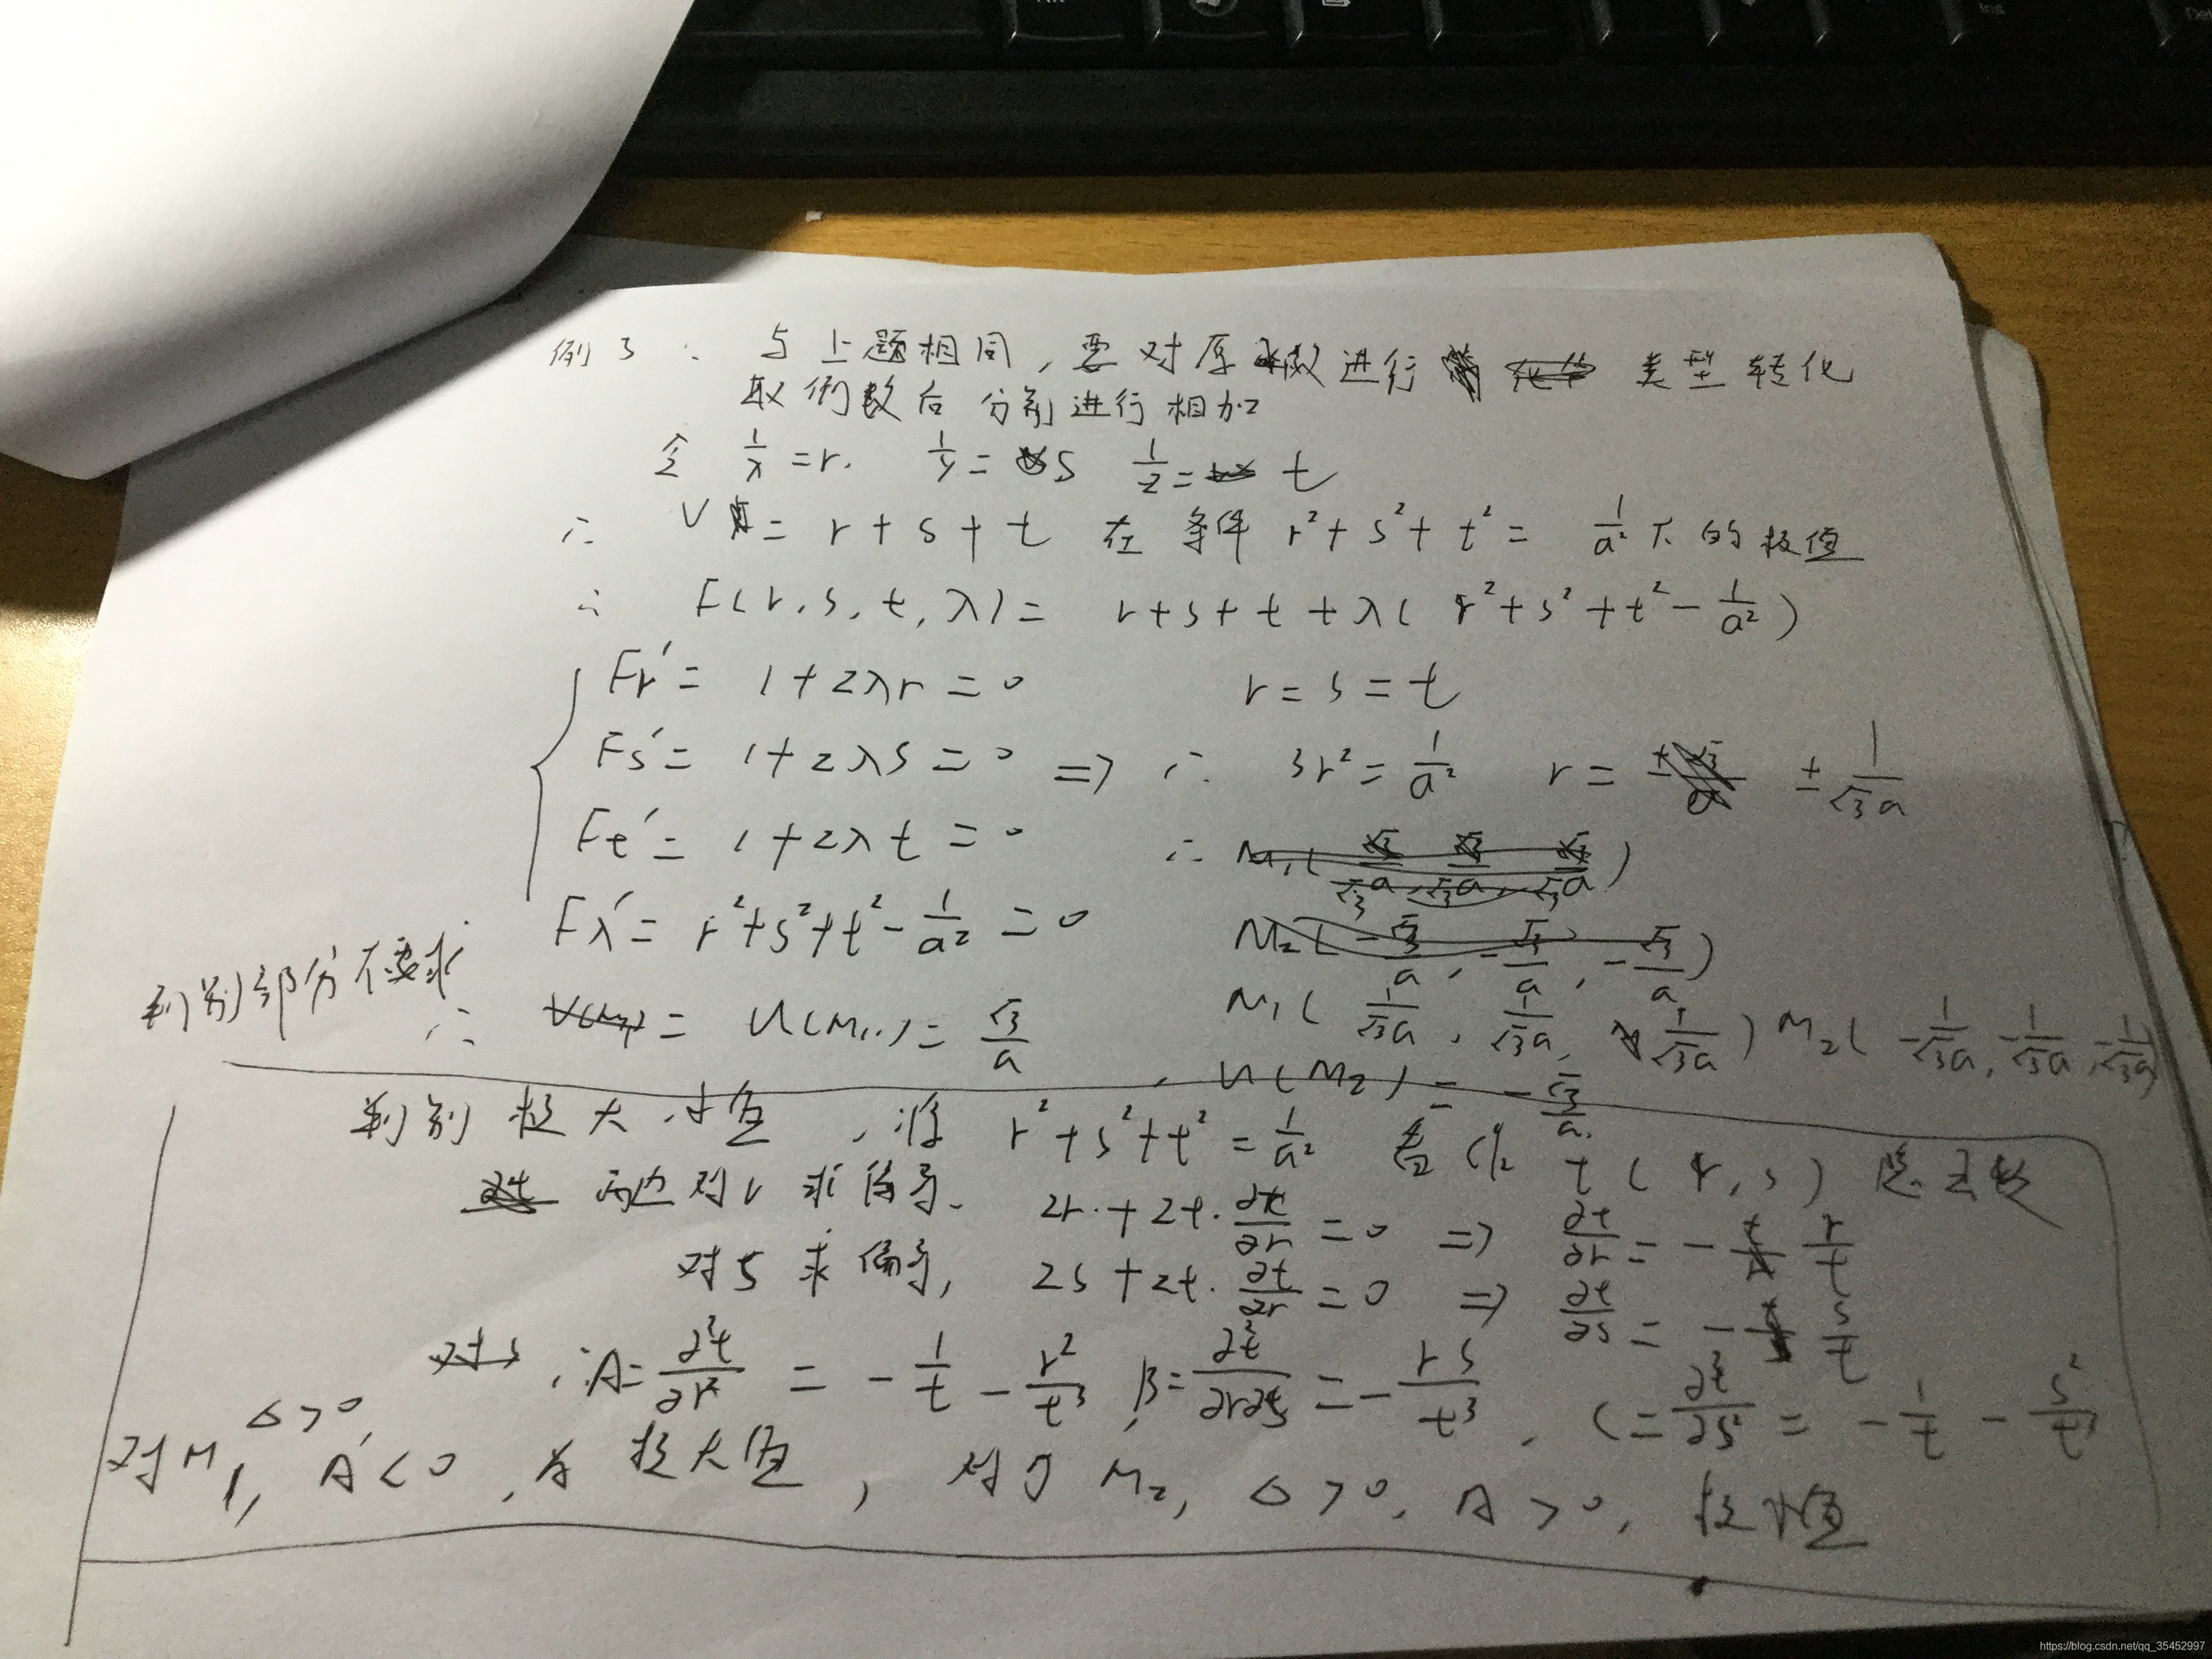 例3: 与上题相同,要对原函数进行 类型转化
取倒数后分别进行相加
令 1/x = r. 1/y = s 1/z = t
∴ V = r + s + t 在条件 r² + s² + t² = 1/a² 下的极值
∴ F(r, s, t, λ) = r + s + t + λ( r² + s² + t² - 1/a² )
Fr' = 1 + 2λr = 0 r = s = t
Fs' = 1 + 2λs = 0 => ∴ 3r² = 1/a² r = ± 1/√3a
Ft' = 1 + 2λt = 0
Fλ' = r² + s² + t² - 1/a² = 0
M₁( 1/√3a , 1/√3a , 1/√3a ) M₂( -1/√3a , -1/√3a , -1/√3a )
判别部分不要求
∴ = U(M₁) = √3/a , U(M₂) = -√3/a.
判别极大小值 , 将 r² + s² + t² = 1/a² 看作 t(r, s) 隐函数
两边对r求偏导. 2r + 2t · ∂t/∂r = 0 => ∂t/∂r = - r/t
对s求偏导, 2s + 2t · ∂t/∂r = 0 => ∂t/∂s = - s/t
∴ A = ∂²t/∂r² = - 1/t - r²/t³ , B = ∂²t/∂r∂s = - rs/t³ , C = ∂²t/∂s² = - 1/t - s²/t³
对M₁, Δ>0, A<0, 为极大值, 对于M₂, Δ>0, A>0, 极小值
https://blog.csdn.net/qq_35452997